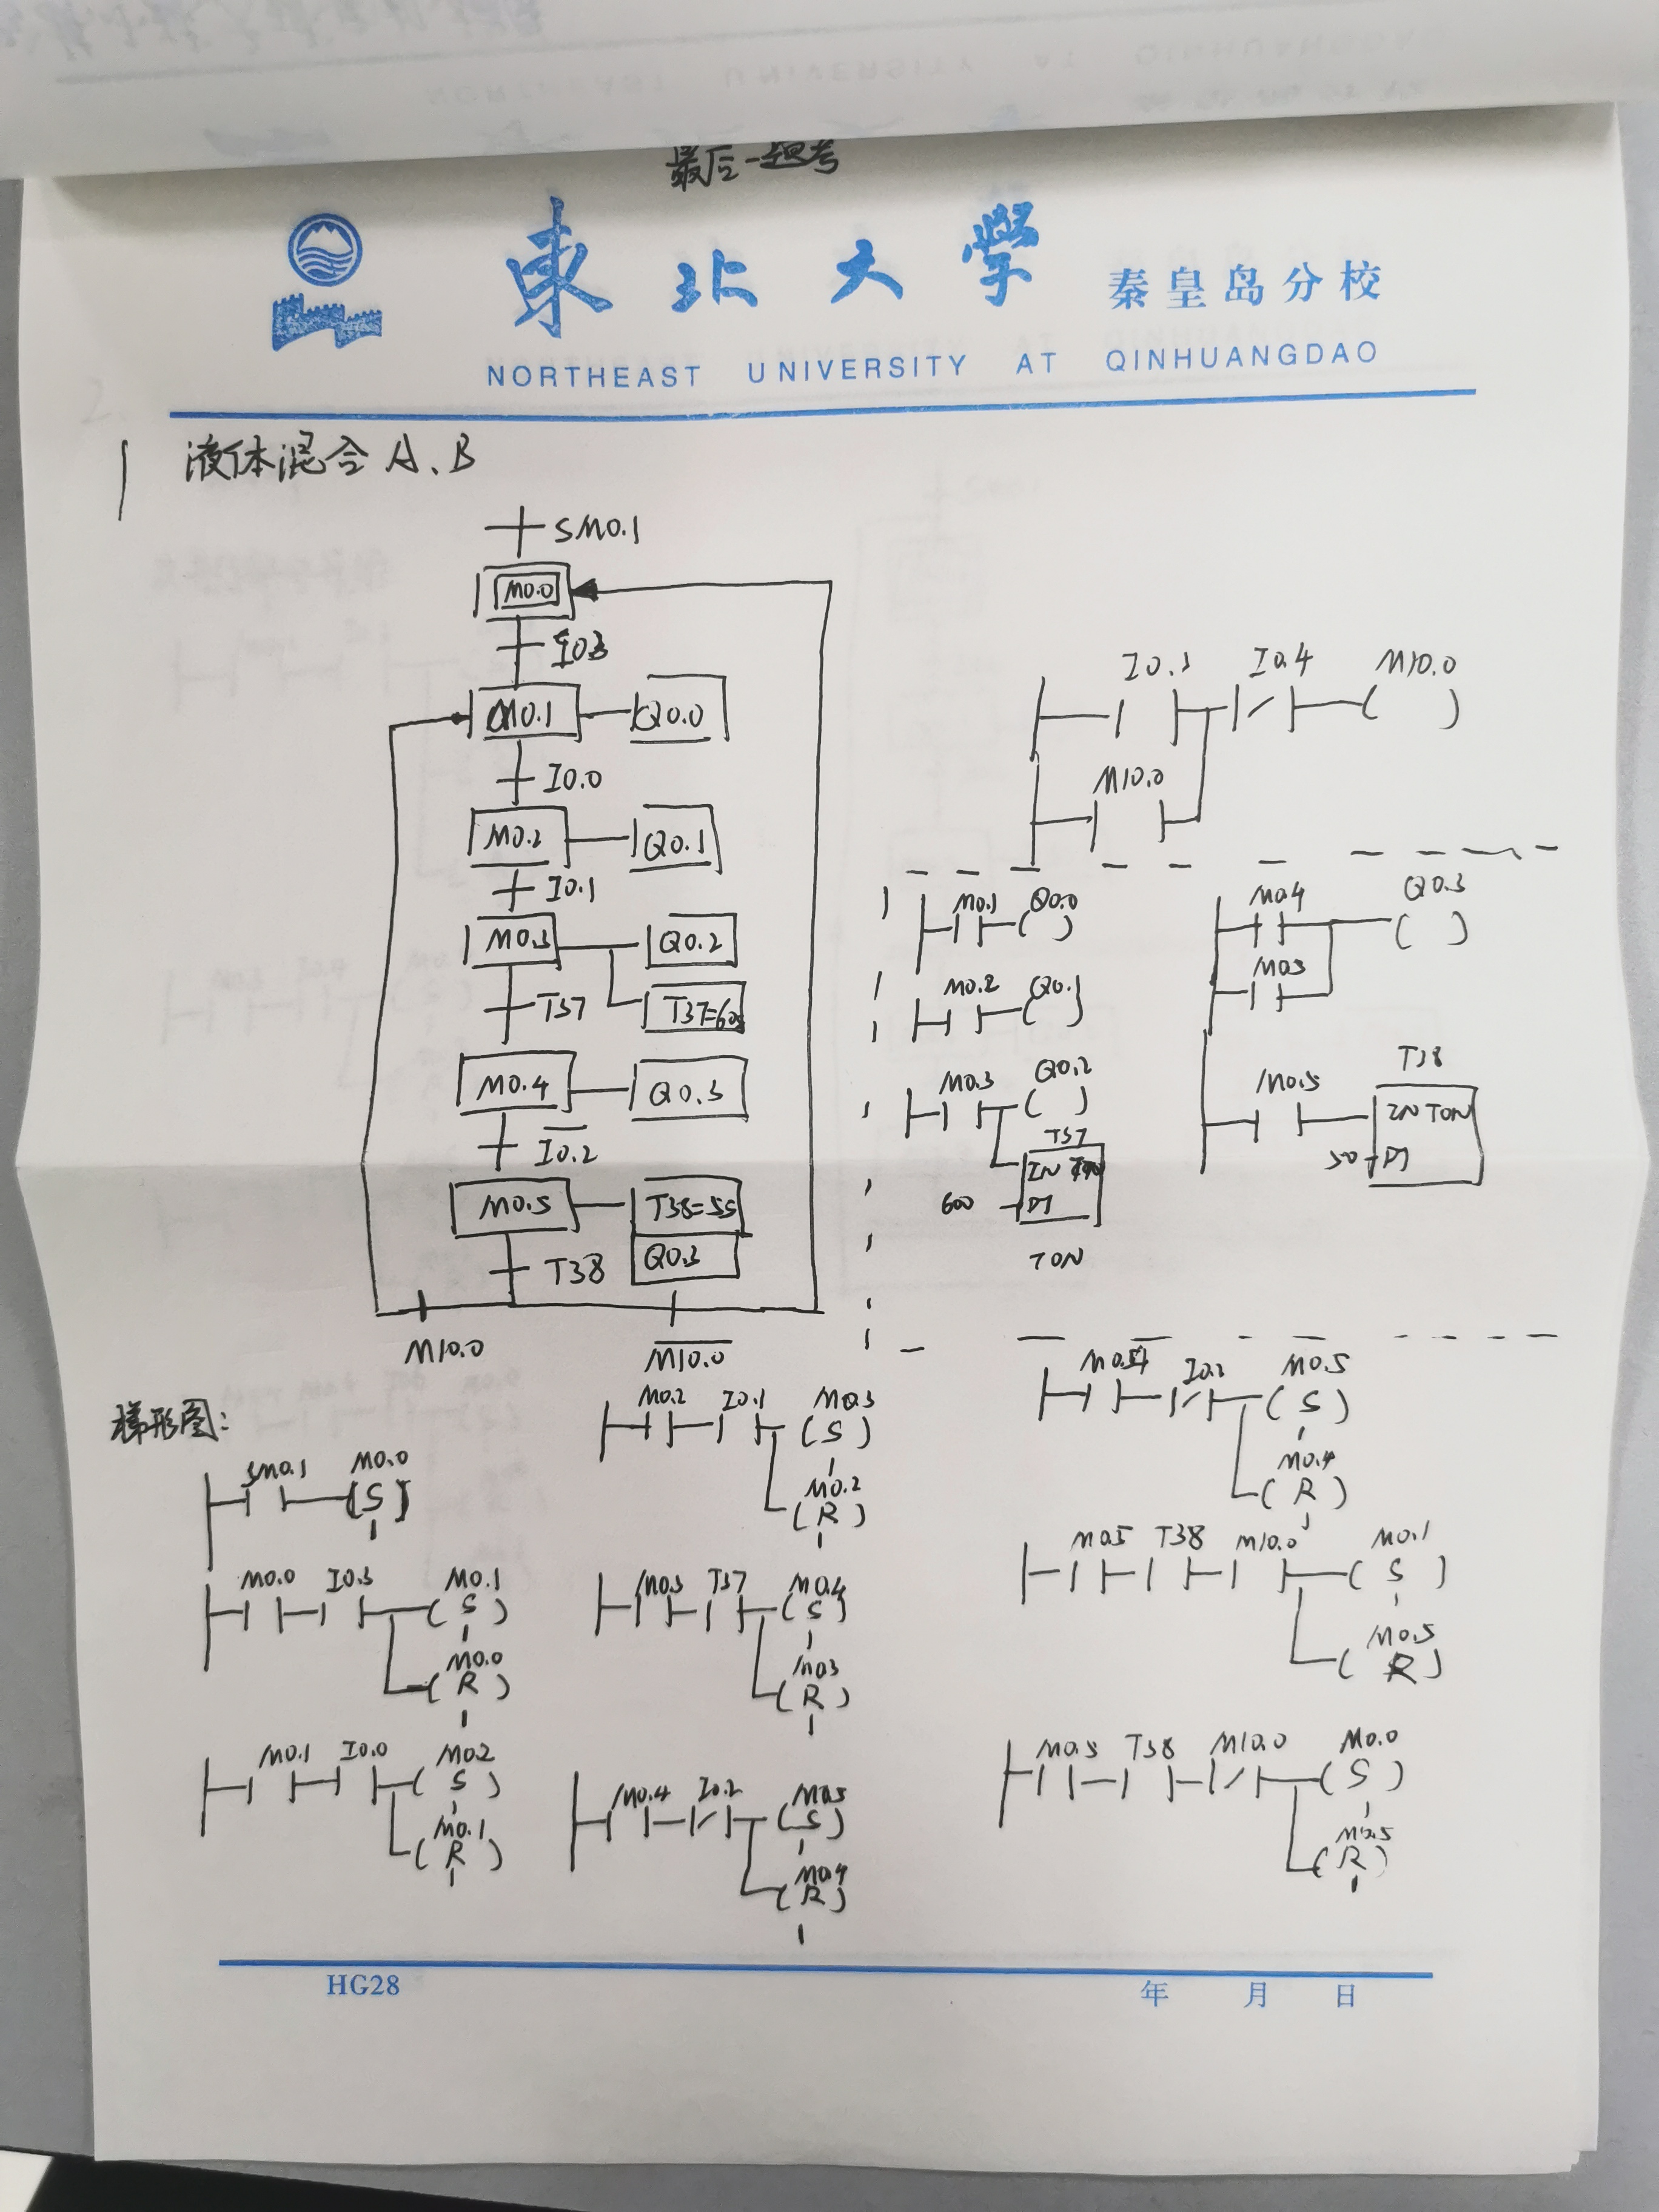 最后一题考
東北大學 秦皇岛分校
NORTHEAST UNIVERSITY AT QINHUANGDAO
1 液体混合A、B
SM0.1
M0.0
I0.3
M0.1 Q0.0
I0.0
M0.2 Q0.1
I0.1
M0.3 Q0.2
T37 T37=60s
M0.4 Q0.3
I0.2
M0.5 T38=5s
T38 Q0.3
M10.0 M10.0
I0.3 I0.4 M10.0
M10.0
M0.1 Q0.0
M0.2 Q0.1
M0.3 Q0.2
T37
IN TON
600 PT
TON
M0.4 Q0.3
M0.5
M0.5 T38
IN TON
50 PT
梯形图:
SM0.1 M0.0
S
1
M0.0 I0.3 M0.1
S
1
M0.0
R
1
M0.1 I0.0 M0.2
S
1
M0.1
R
1
M0.2 I0.1 M0.3
S
1
M0.2
R
1
M0.3 T37 M0.4
S
1
M0.3
R
1
M0.4 I0.2 M0.5
S
1
M0.4
R
1
M0.4 I0.2 M0.5
S
1
M0.4
R
1
M0.5 T38 M10.0 M0.1
S
1
M0.5
R
M0.5 T38 M10.0 M0.0
S
1
M0.5
R
1
HG28 年 月 日